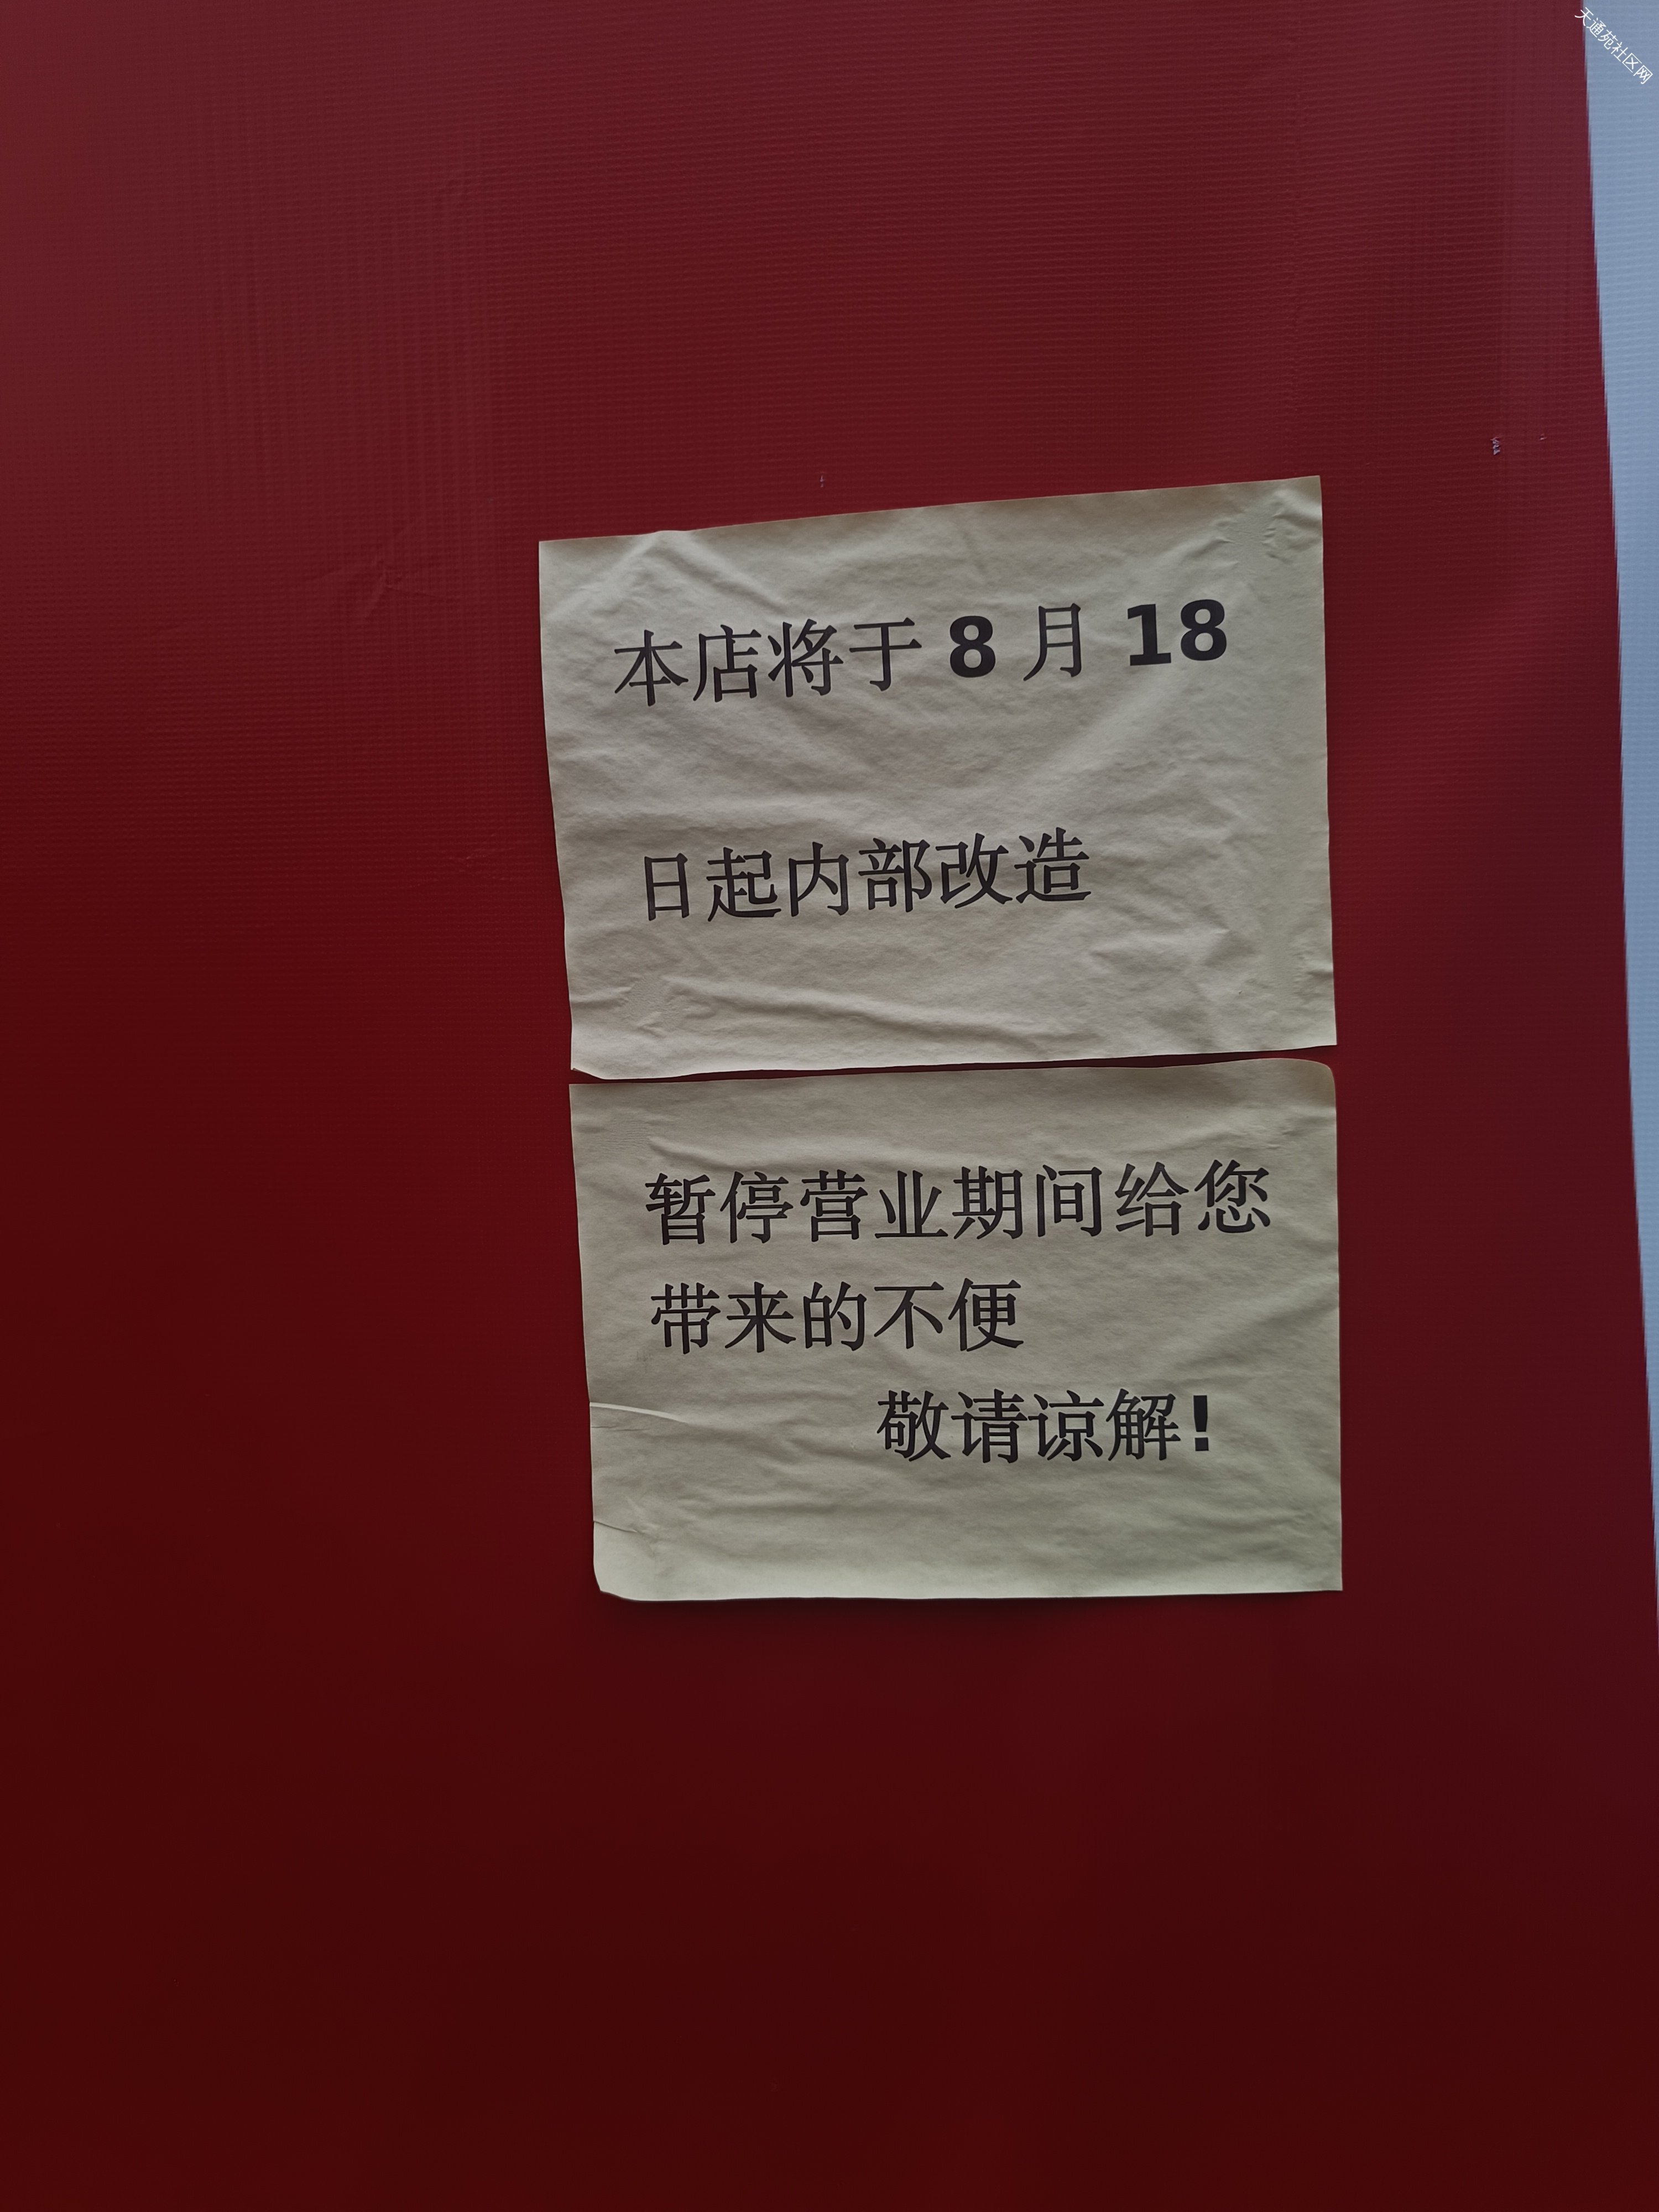 天通苑社区网
本店将于 8 月 18
日起内部改造
暂停营业期间给您
带来的不便
敬请谅解!